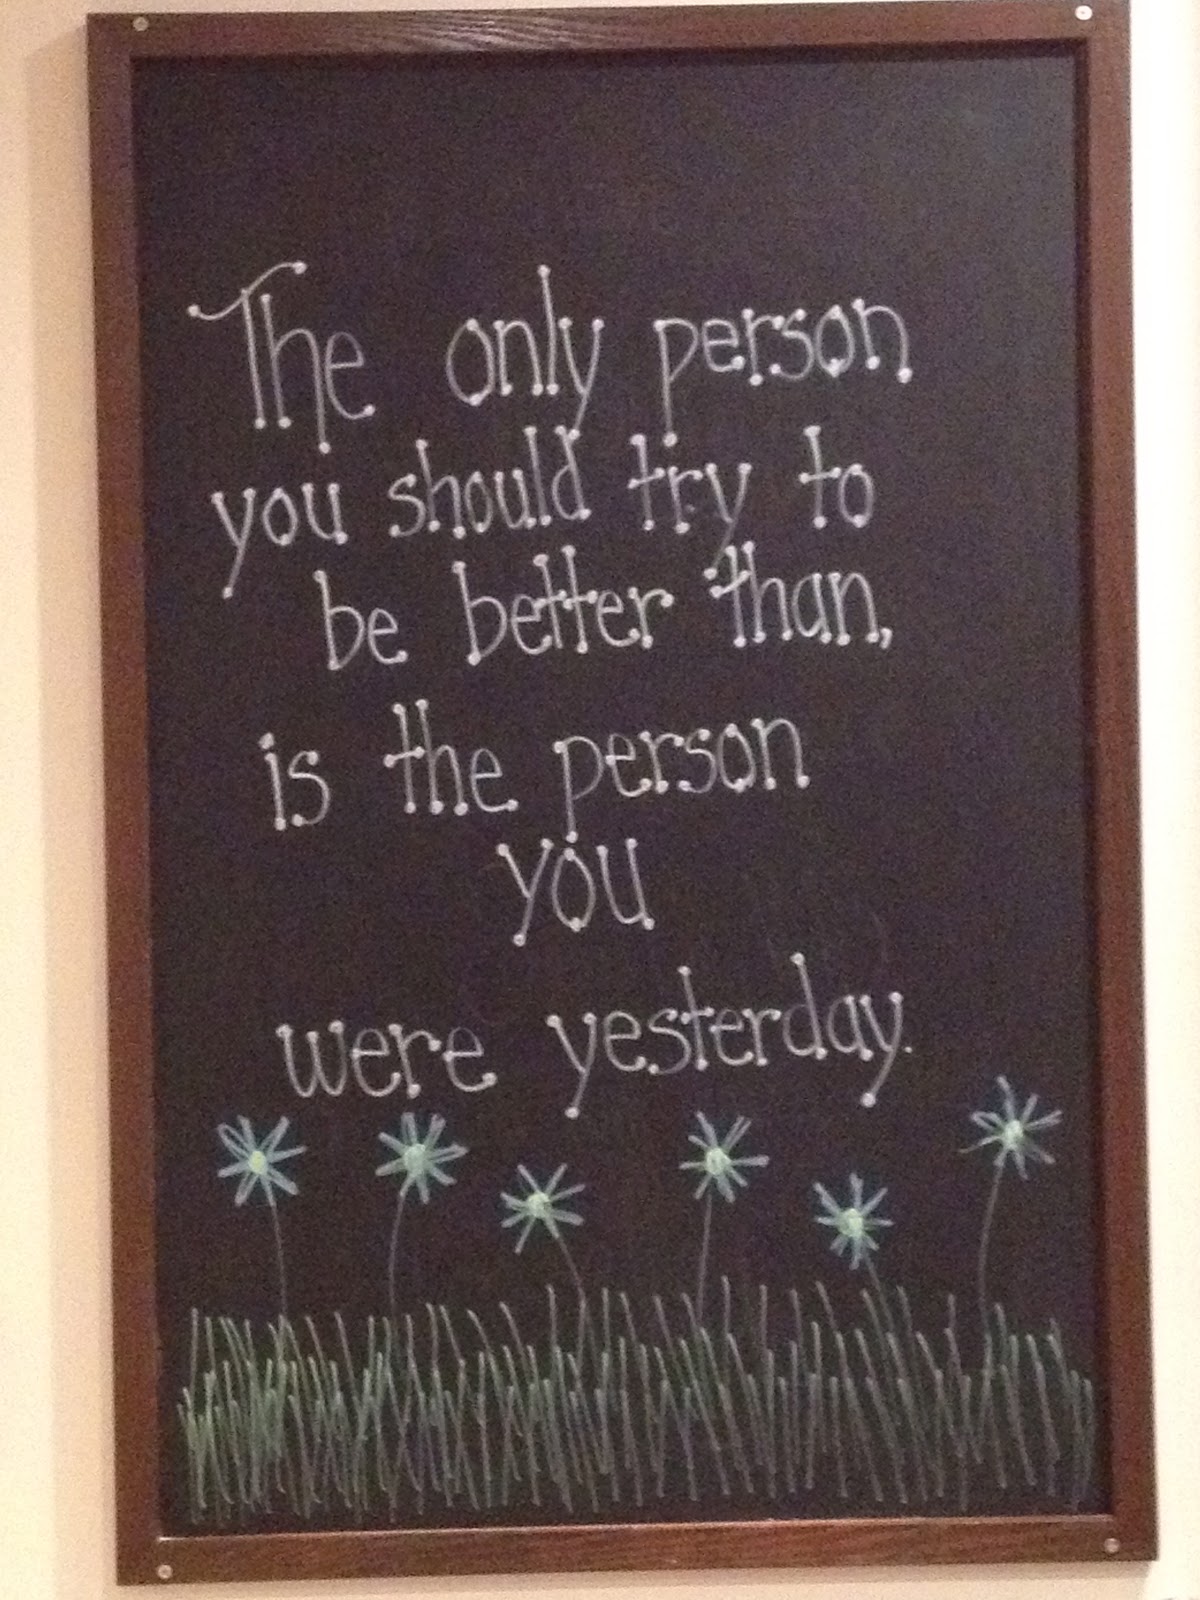 The only person
you should try to
be better than,
is the person
you
were yesterday.